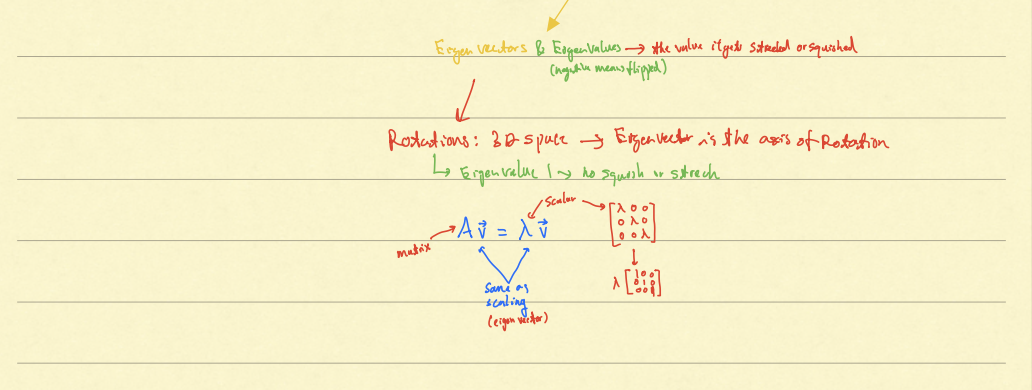 Eigenvectors & Eigenvalues → the value it gets streched or squished
(negative means flipped)
Rotations: 3D space → Eigenvector is the axis of Rotation
↳ Eigenvalue 1 → no squish or strech
scalar
matrix
A v⃗ = λ v⃗
[λ 0 0
0 λ 0
0 0 λ]
λ [1 0 0
0 1 0
0 0 1]
same as
scaling
(eigen vector)